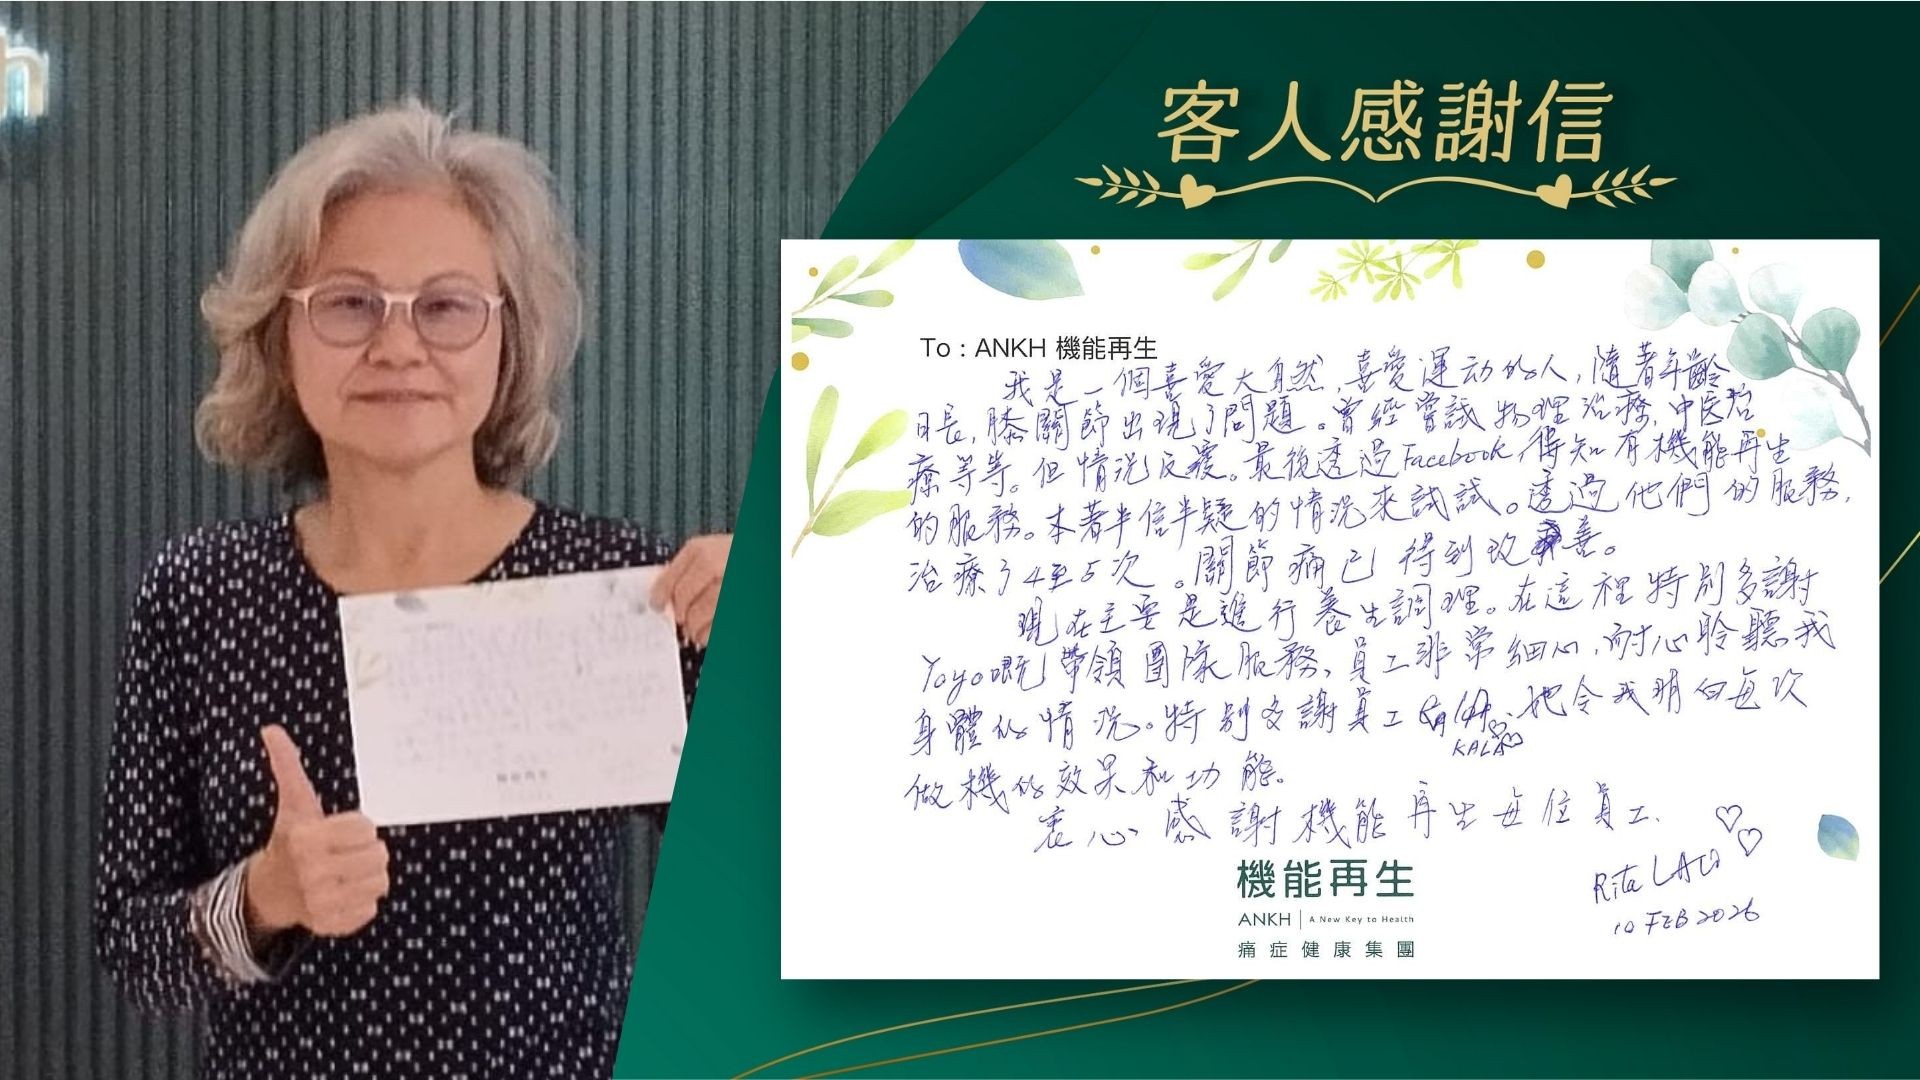 客人感謝信
To : ANKH 機能再生
我是一個喜愛大自然，喜愛運动的人，隨著年齡
日長，膝關節出現了問題。曾經嘗試物理治療，中医治
療等等。但情況反覆。最後透過Facebook，得知有機能再生
的服務。本著半信半疑的情況來試試。透過他們的服務，
治療了4至5次。關節痛已得到改善。
現在主要是進行養生調理。在這裡特別多謝
Yoyo嘅帶領團隊服務，員工非常細心，耐心聆聽我
身體的情況。特別多謝員工 她令我明白每次
KALA
做機的效果和功能。
衷心感謝機能再生每位員工.
Rita
10 FEB 2026
機能再生
ANKH | A New Key to Health
痛症健康集團